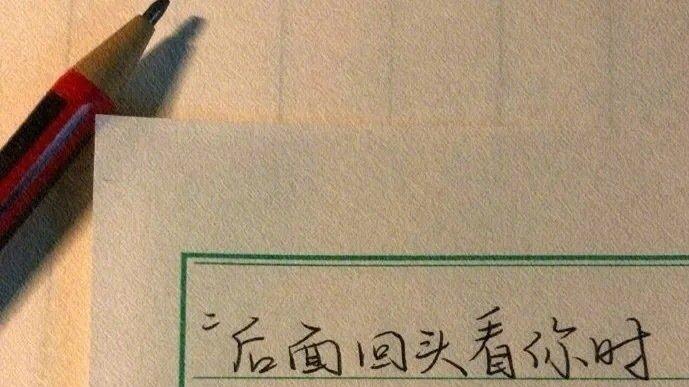 “后面回头看你时